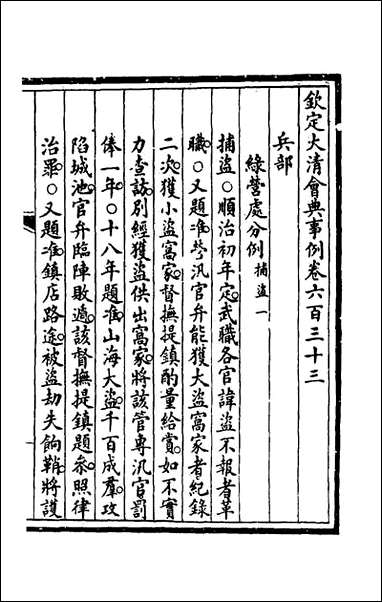 欽定大清會典事例卷六百三十三
兵部
綠營處分例 捕盜一
捕盜○順治初年定武職各官諱盜不報者革
職○又題准營汛官弁能獲大盜窩家者紀錄
二次獲小盜窩家督撫提鎮酌量給賞如不實
力查訪別經獲盜供出窩家將該管專汛官罰
俸一年○十八年題准山海大盜千百成羣攻
陷城池官弁臨陣敗遁該督撫提鎮題參照律
治罪○又題准鎮店路途被盜劫失餉鞘將護